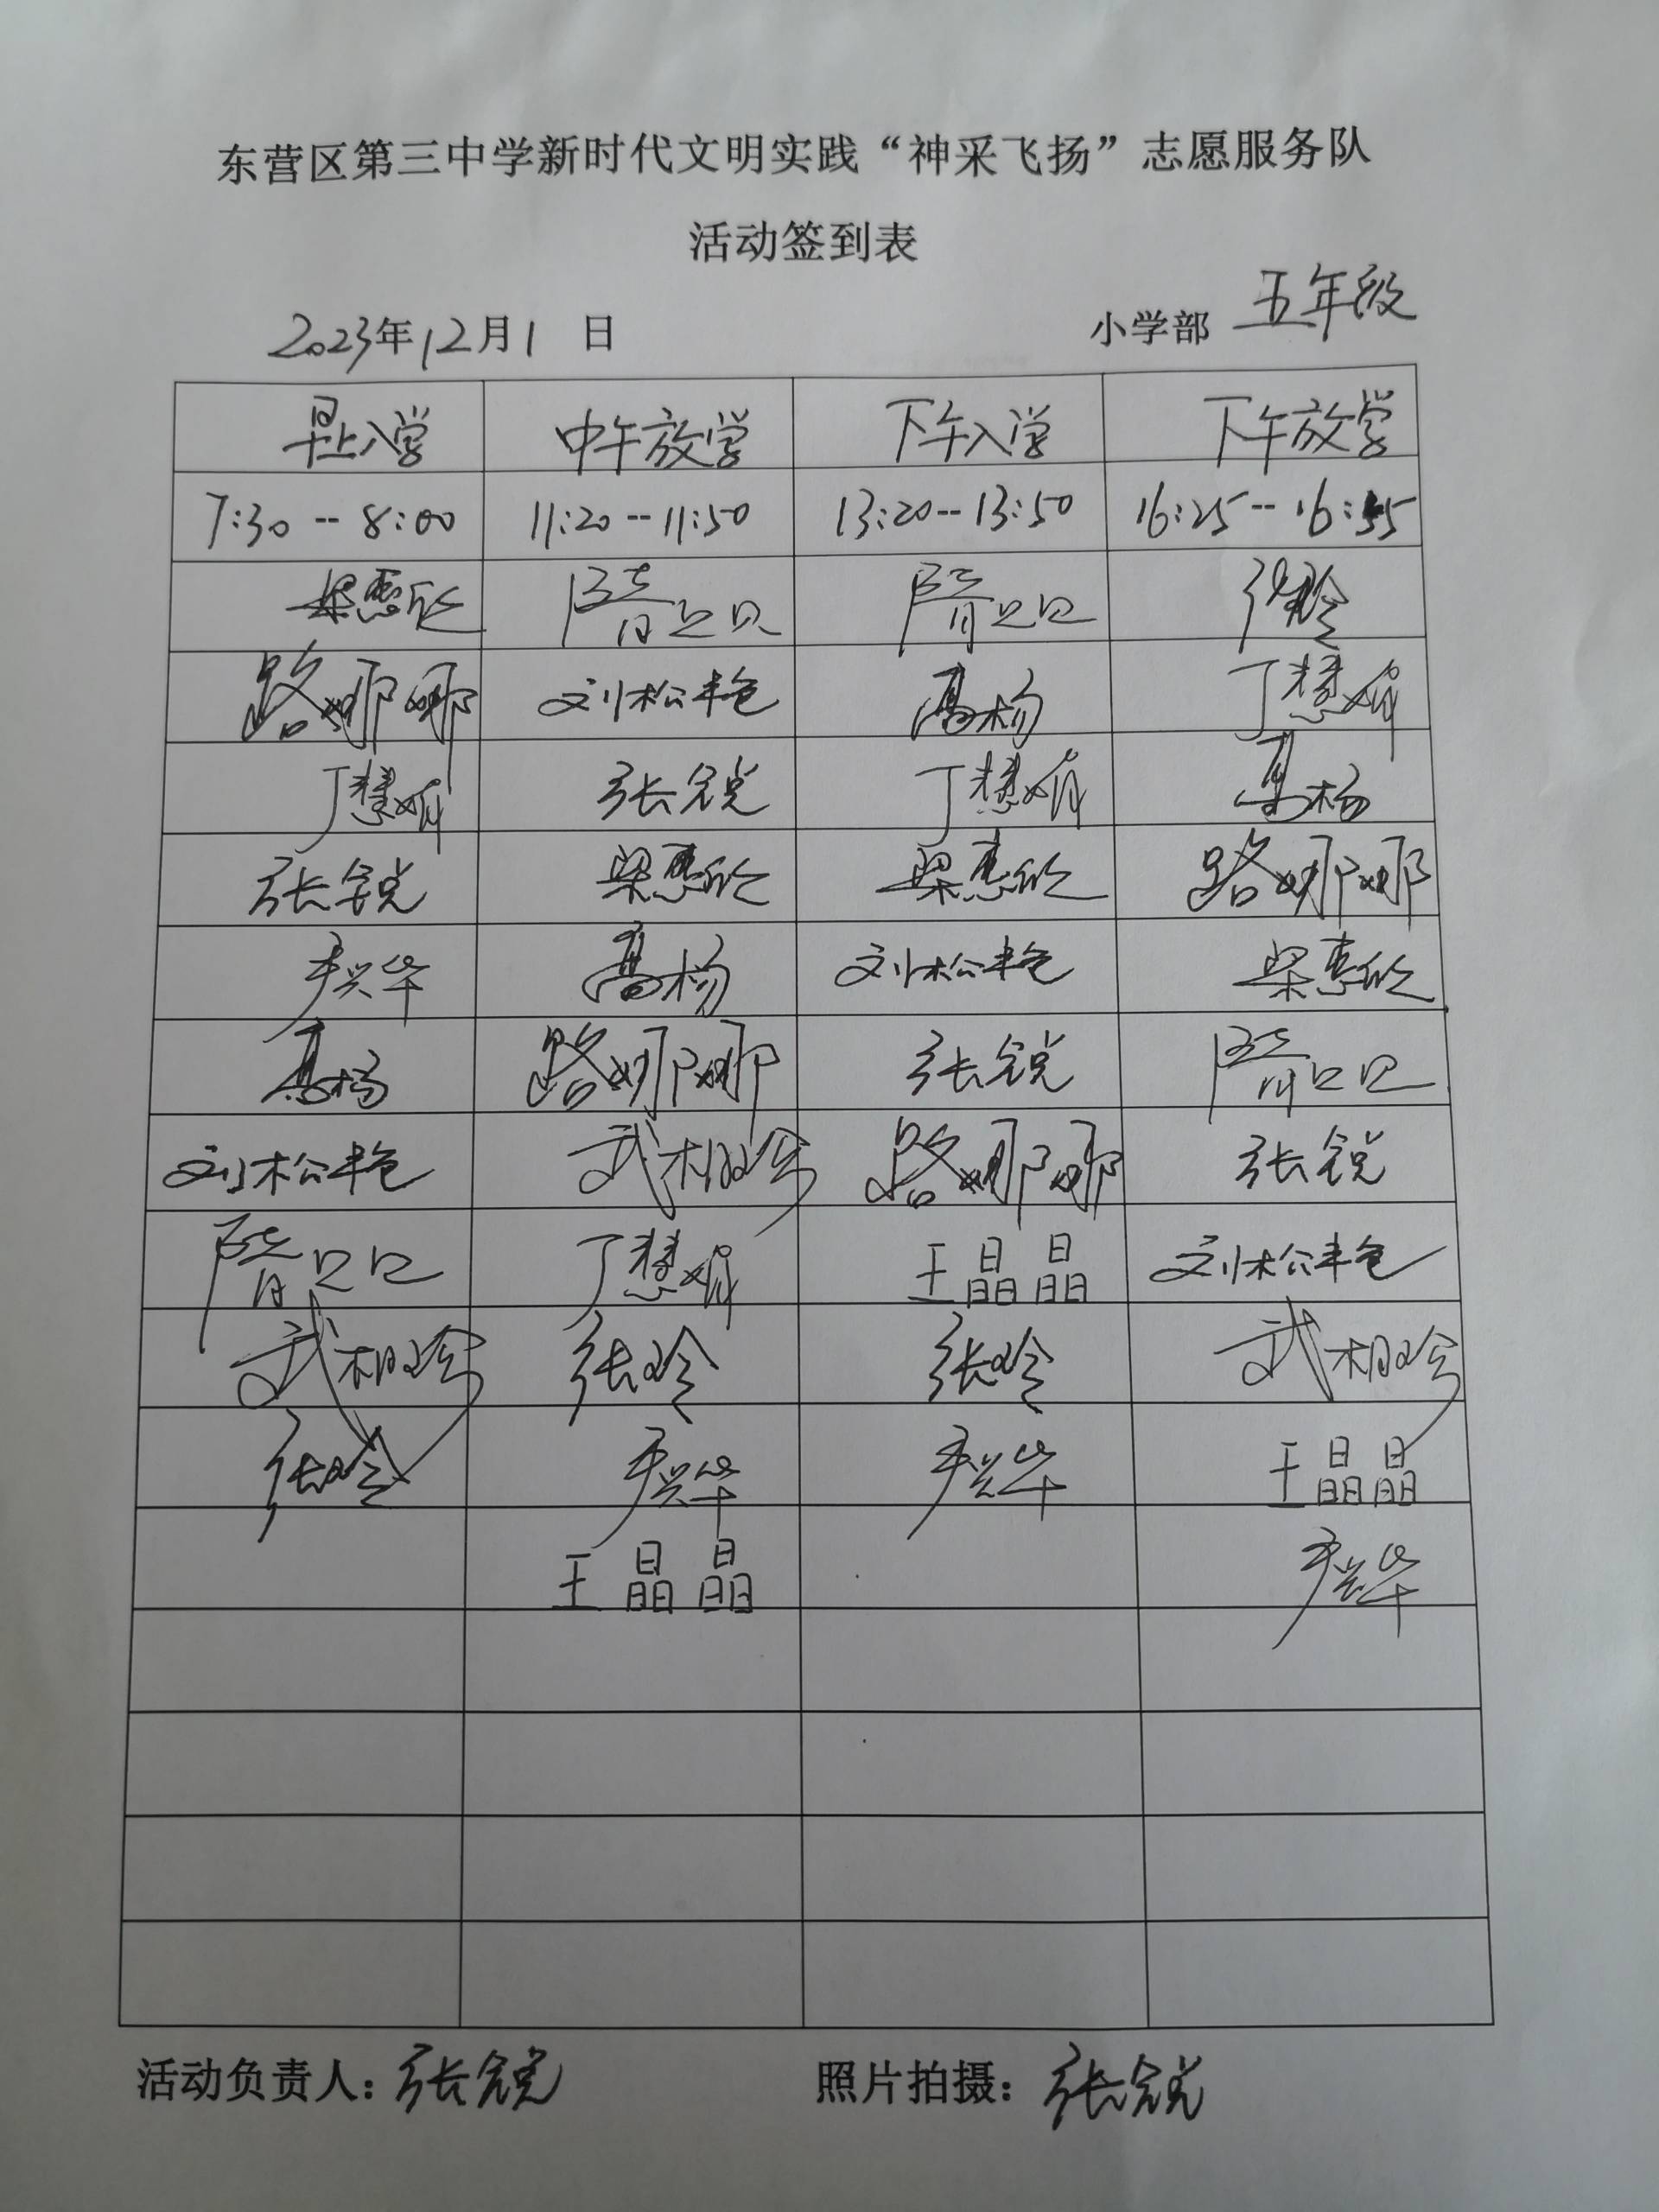 东营区第三中学新时代文明实践“神采飞扬”志愿服务队
活动签到表
2023年12月1 日 小学部 五年级
早上入学 中午放学 下午入学 下午放学
7:30--8:00 11:20--11:50 13:20--13:50 16:25--16:55
梁惠欣 张玲
路娜娜 刘松艳 高杨 丁慧娟
丁慧娟 张锐 丁慧娟 高杨
张锐 梁惠欣 梁惠欣 路娜娜
尹兴华 高杨 刘松艳 梁惠欣
高杨 路娜娜 张锐
刘松艳 武相玲 路娜娜 张锐
丁慧娟 王晶晶 刘松艳
武相玲 张玲 张玲 武相玲
张玲 尹兴华 尹兴华 王晶晶
王晶晶 尹兴华
活动负责人：张锐 照片拍摄：张锐